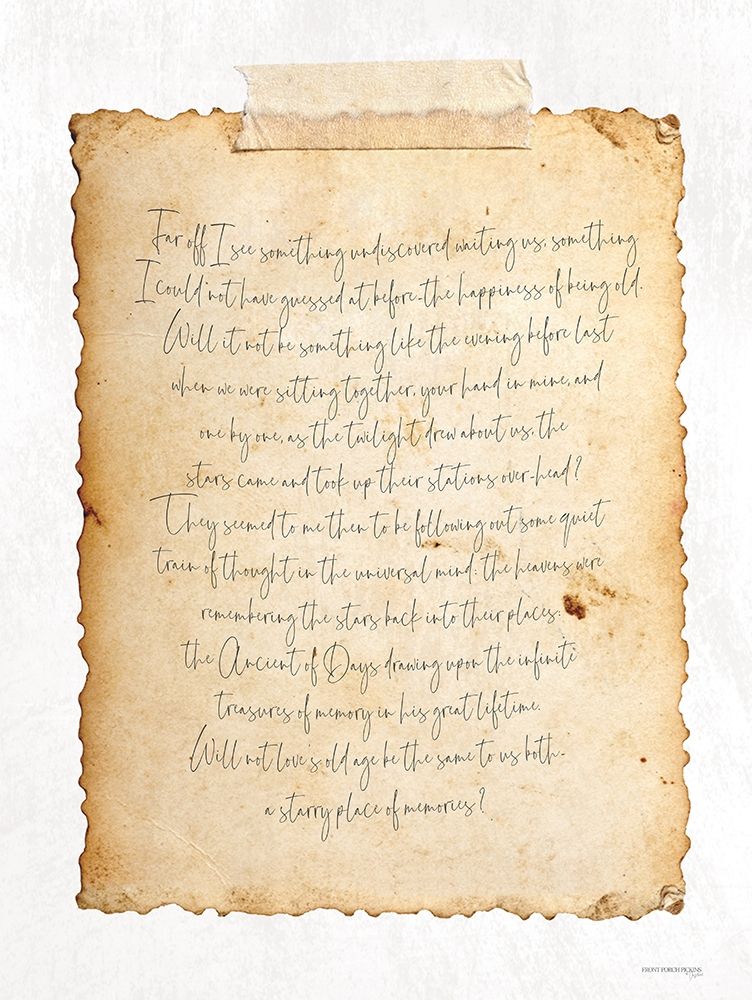 Far off I see something undiscovered waiting us, something
I could not have guessed at before-the happiness of being old.
Will it not be something like the evening before last
when we were sitting together, your hand in mine, and
one by one, as the twilight drew about us, the
stars came and took up their stations over-head?
They seemed to me then to be following out some quiet
train of thought in the universal mind: the heavens were
remembering the stars back into their places:
the Ancient of Days drawing upon the infinite
treasures of memory in his great lifetime.
Will not love's old age be the same to us both-
a starry place of memories?
FRONT PORCH PICKINS
Digital